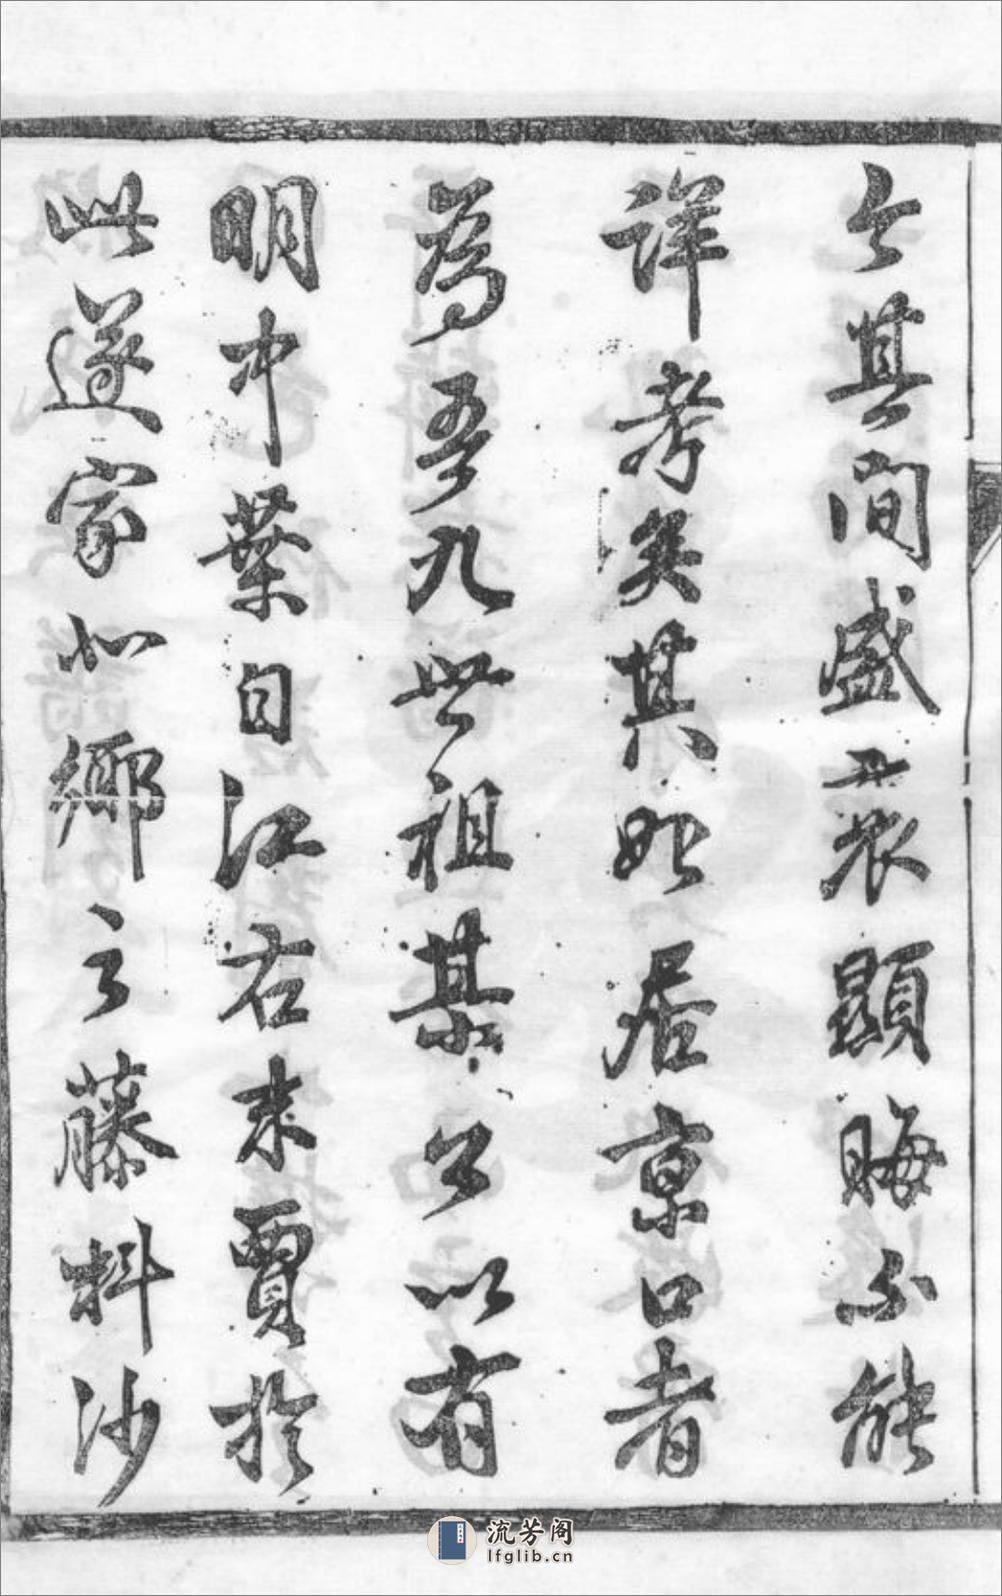 亡其間盛衰顯晦不能
詳考矣其始居京口者
為吾九世祖某公以有
明中葉自江右來賈於
此遂家北鄉之藤料沙
流芳阁
lfglib.cn